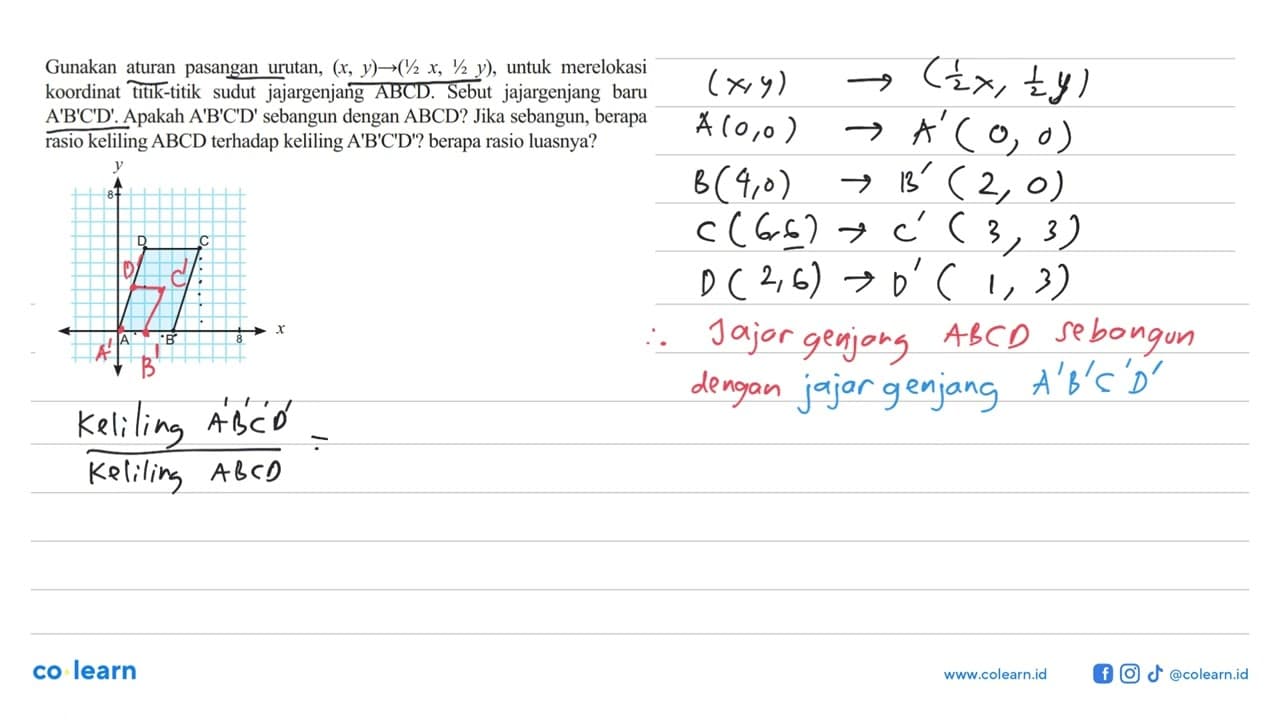 Gunakan aturan pasangan urutan, (x, y)→(½ x, ½ y), untuk merelokasi
koordinat titik-titik sudut jajargenjang ABCD. Sebut jajargenjang baru
A'B'C'D'. Apakah A'B'C'D' sebangun dengan ABCD? Jika sebangun, berapa
rasio keliling ABCD terhadap keliling A'B'C'D'? berapa rasio luasnya?
y
8
D
C
D'
C'
A
B
8
x
A'
B'
(x,y) → (1/2 x, 1/2 y)
A(0,0) → A'(0, 0)
B(4,0) → B'(2, 0)
C(6,6) → C'(3, 3)
D(2,6) → D'(1, 3)
∴ Jajar genjang ABCD sebangun
dengan jajar genjang A'B'C'D'
Keliling A'B'C'D' =
Keliling ABCD
co learn
www.colearn.id
@colearn.id